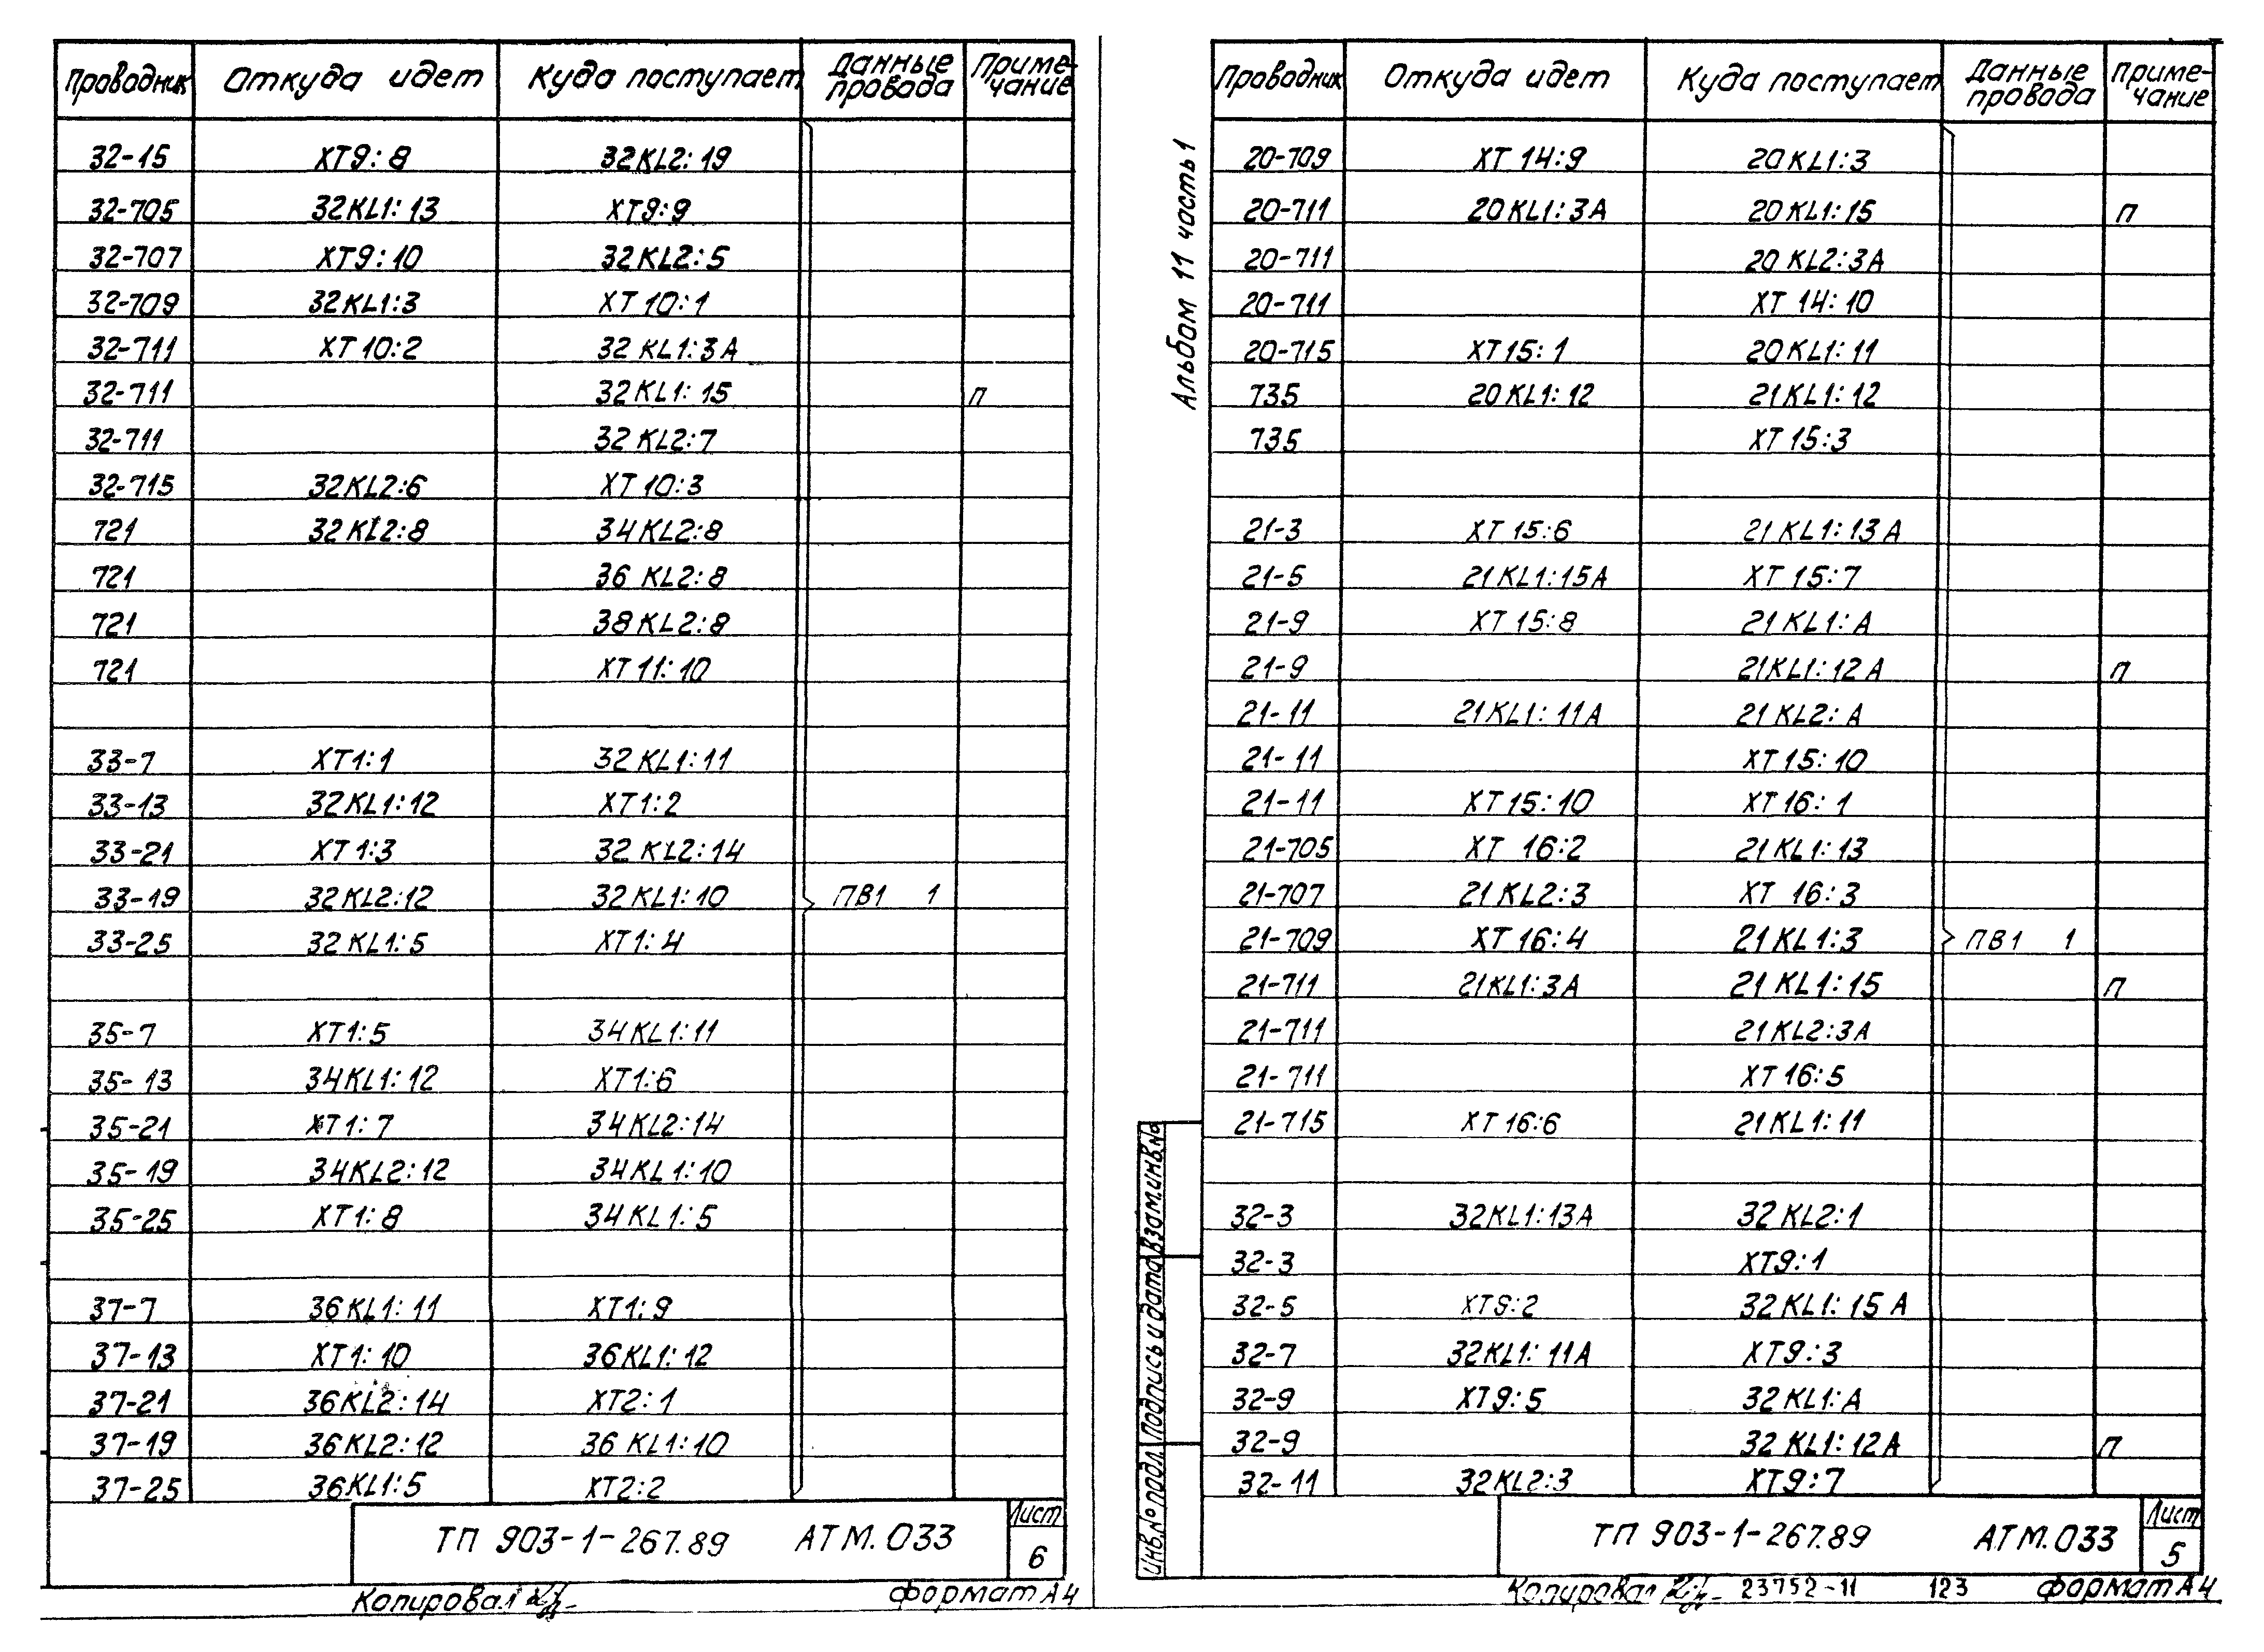 Проводник Откуда идет Куда поступает Данные провода Приме-чание
32-15 XT9:8 32KL2:19
32-705 32KL1:13 XT9:9
32-707 XT9:10 32KL2:5
32-709 32KL1:3 XT10:1
32-711 XT10:2 32KL1:3A
32-711 32KL1:15 П
32-711 32KL2:7
32-715 32KL2:6 XT10:3
721 32KL2:8 34KL2:8
721 36KL2:8
721 38KL2:8
721 XT11:10
33-7 XT1:1 32KL1:11
33-13 32KL1:12 XT1:2
33-21 XT1:3 32KL2:14
33-19 32KL2:12 32KL1:10 ПВ1 1
33-25 32KL1:5 XT1:4
35-7 XT1:5 34KL1:11
35-13 34KL1:12 XT1:6
35-21 XT1:7 34KL2:14
35-19 34KL2:12 34KL1:10
35-25 XT1:8 34KL1:5
37-7 36KL1:11 XT1:9
37-13 XT1:10 36KL1:12
37-21 36KL2:14 XT2:1
37-19 36KL2:12 36KL1:10
37-25 36KL1:5 XT2:2
ТП 903-1-267.89 АТМ.033
Лист
6
Копировал
формат А4
Альбом 11 часть 1
Проводник Откуда идет Куда поступает Данные провода Приме-чание
20-709 XT14:9 20KL1:3
20-711 20KL1:3A 20KL1:15 П
20-711 20KL2:3A
20-711 XT14:10
20-715 XT15:1 20KL1:11
735 20KL1:12 21KL1:12
735 XT15:3
21-3 XT15:6 21KL1:13A
21-5 21KL1:15A XT15:7
21-9 XT15:8 21KL1:A
21-9 21KL1:12A П
21-11 21KL1:11A 21KL2:A
21-11 XT15:10
21-11 XT15:10 XT16:1
21-705 XT16:2 21KL1:13
21-707 21KL2:3 XT16:3
21-709 XT16:4 21KL1:3 ПВ1 1
21-711 21KL1:3A 21KL1:15 П
21-711 21KL2:3A
21-711 XT16:5
21-715 XT16:6 21KL1:11
32-3 32KL1:13A 32KL2:1
32-3 XT9:1
32-5 XT9:2 32KL1:15A
32-7 32KL1:11A XT9:3
32-9 XT9:5 32KL1:A
32-9 32KL1:12A П
32-11 32KL2:3 XT9:7
Инв.№ подл. Подпись и дата Взам.инв.№
ТП 903-1-267.89 АТМ.033
Лист
5
Копировал 23752-11 123 формат А4